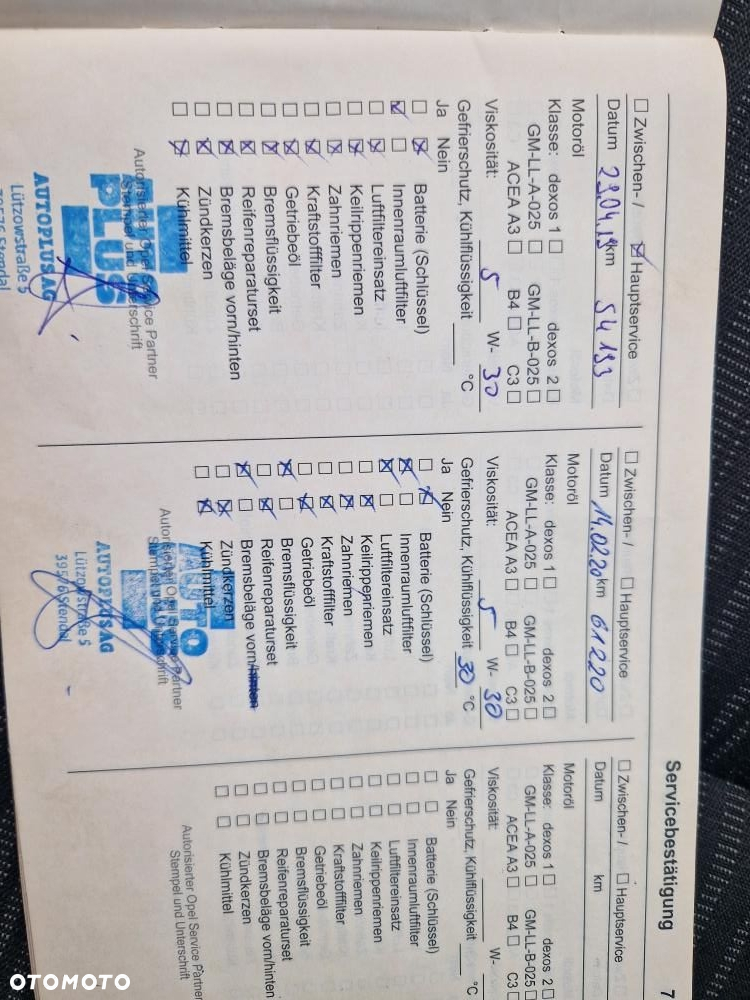 Servicebestätigung
7
☐ Zwischen- / ☒ Hauptservice
Datum 29.04.19 km 54 193
Motoröl
Klasse: dexos 1 ☐ dexos 2 ☐
GM-LL-A-025 ☐ GM-LL-B-025 ☐
ACEA A3 ☐ B4 ☐ C3 ☐
Viskosität: 5 W- 30
Gefrierschutz, Kühlflüssigkeit °C
Ja Nein
☐ ☒ Batterie (Schlüssel)
☒ ☐ Innenraumluftfilter
☐ ☒ Luftfiltereinsatz
☐ ☒ Keilrippenriemen
☐ ☒ Zahnriemen
☐ ☒ Kraftstofffilter
☐ ☒ Getriebeöl
☐ ☒ Bremsflüssigkeit
☐ ☒ Reifenreparaturset
☐ ☒ Bremsbeläge vorn/hinten
☐ ☒ Zündkerzen
☐ ☒ Kühlmittel
Autorisierter Opel Service Partner
Stempel und Unterschrift
PLUS
AUTOPLUS AG
Lützowstraße 5
39576 Stendal
☐ Zwischen- / ☐ Hauptservice
Datum 14.02.20 km 61220
Motoröl
Klasse: dexos 1 ☐ dexos 2 ☐
GM-LL-A-025 ☐ GM-LL-B-025 ☐
ACEA A3 ☐ B4 ☐ C3 ☐
Viskosität: 5 W- 30
Gefrierschutz, Kühlflüssigkeit 30 °C
Ja Nein
☐ ☒ Batterie (Schlüssel)
☒ ☐ Innenraumluftfilter
☒ ☐ Luftfiltereinsatz
☐ ☒ Keilrippenriemen
☐ ☒ Zahnriemen
☐ ☒ Kraftstofffilter
☐ ☒ Getriebeöl
☒ ☐ Bremsflüssigkeit
☐ ☒ Reifenreparaturset
☒ ☐ Bremsbeläge vorn/hinten
☐ ☒ Zündkerzen
☐ ☒ Kühlmittel
Autorisierter Opel Service Partner
Stempel und Unterschrift
AUTO
AUTOPLUS AG
Lützowstraße 5
39576 Stendal
☐ Zwischen- / ☐ Hauptservice
Datum km
Motoröl
Klasse: dexos 1 ☐ dexos 2 ☐
GM-LL-A-025 ☐ GM-LL-B-025 ☐
ACEA A3 ☐ B4 ☐ C3 ☐
Viskosität: W-
Gefrierschutz, Kühlflüssigkeit °C
Ja Nein
☐ ☐ Batterie (Schlüssel)
☐ ☐ Innenraumluftfilter
☐ ☐ Luftfiltereinsatz
☐ ☐ Keilrippenriemen
☐ ☐ Zahnriemen
☐ ☐ Kraftstofffilter
☐ ☐ Getriebeöl
☐ ☐ Bremsflüssigkeit
☐ ☐ Reifenreparaturset
☐ ☐ Bremsbeläge vorn/hinten
☐ ☐ Zündkerzen
☐ ☐ Kühlmittel
Autorisierter Opel Service Partner
Stempel und Unterschrift
OTOMOTO